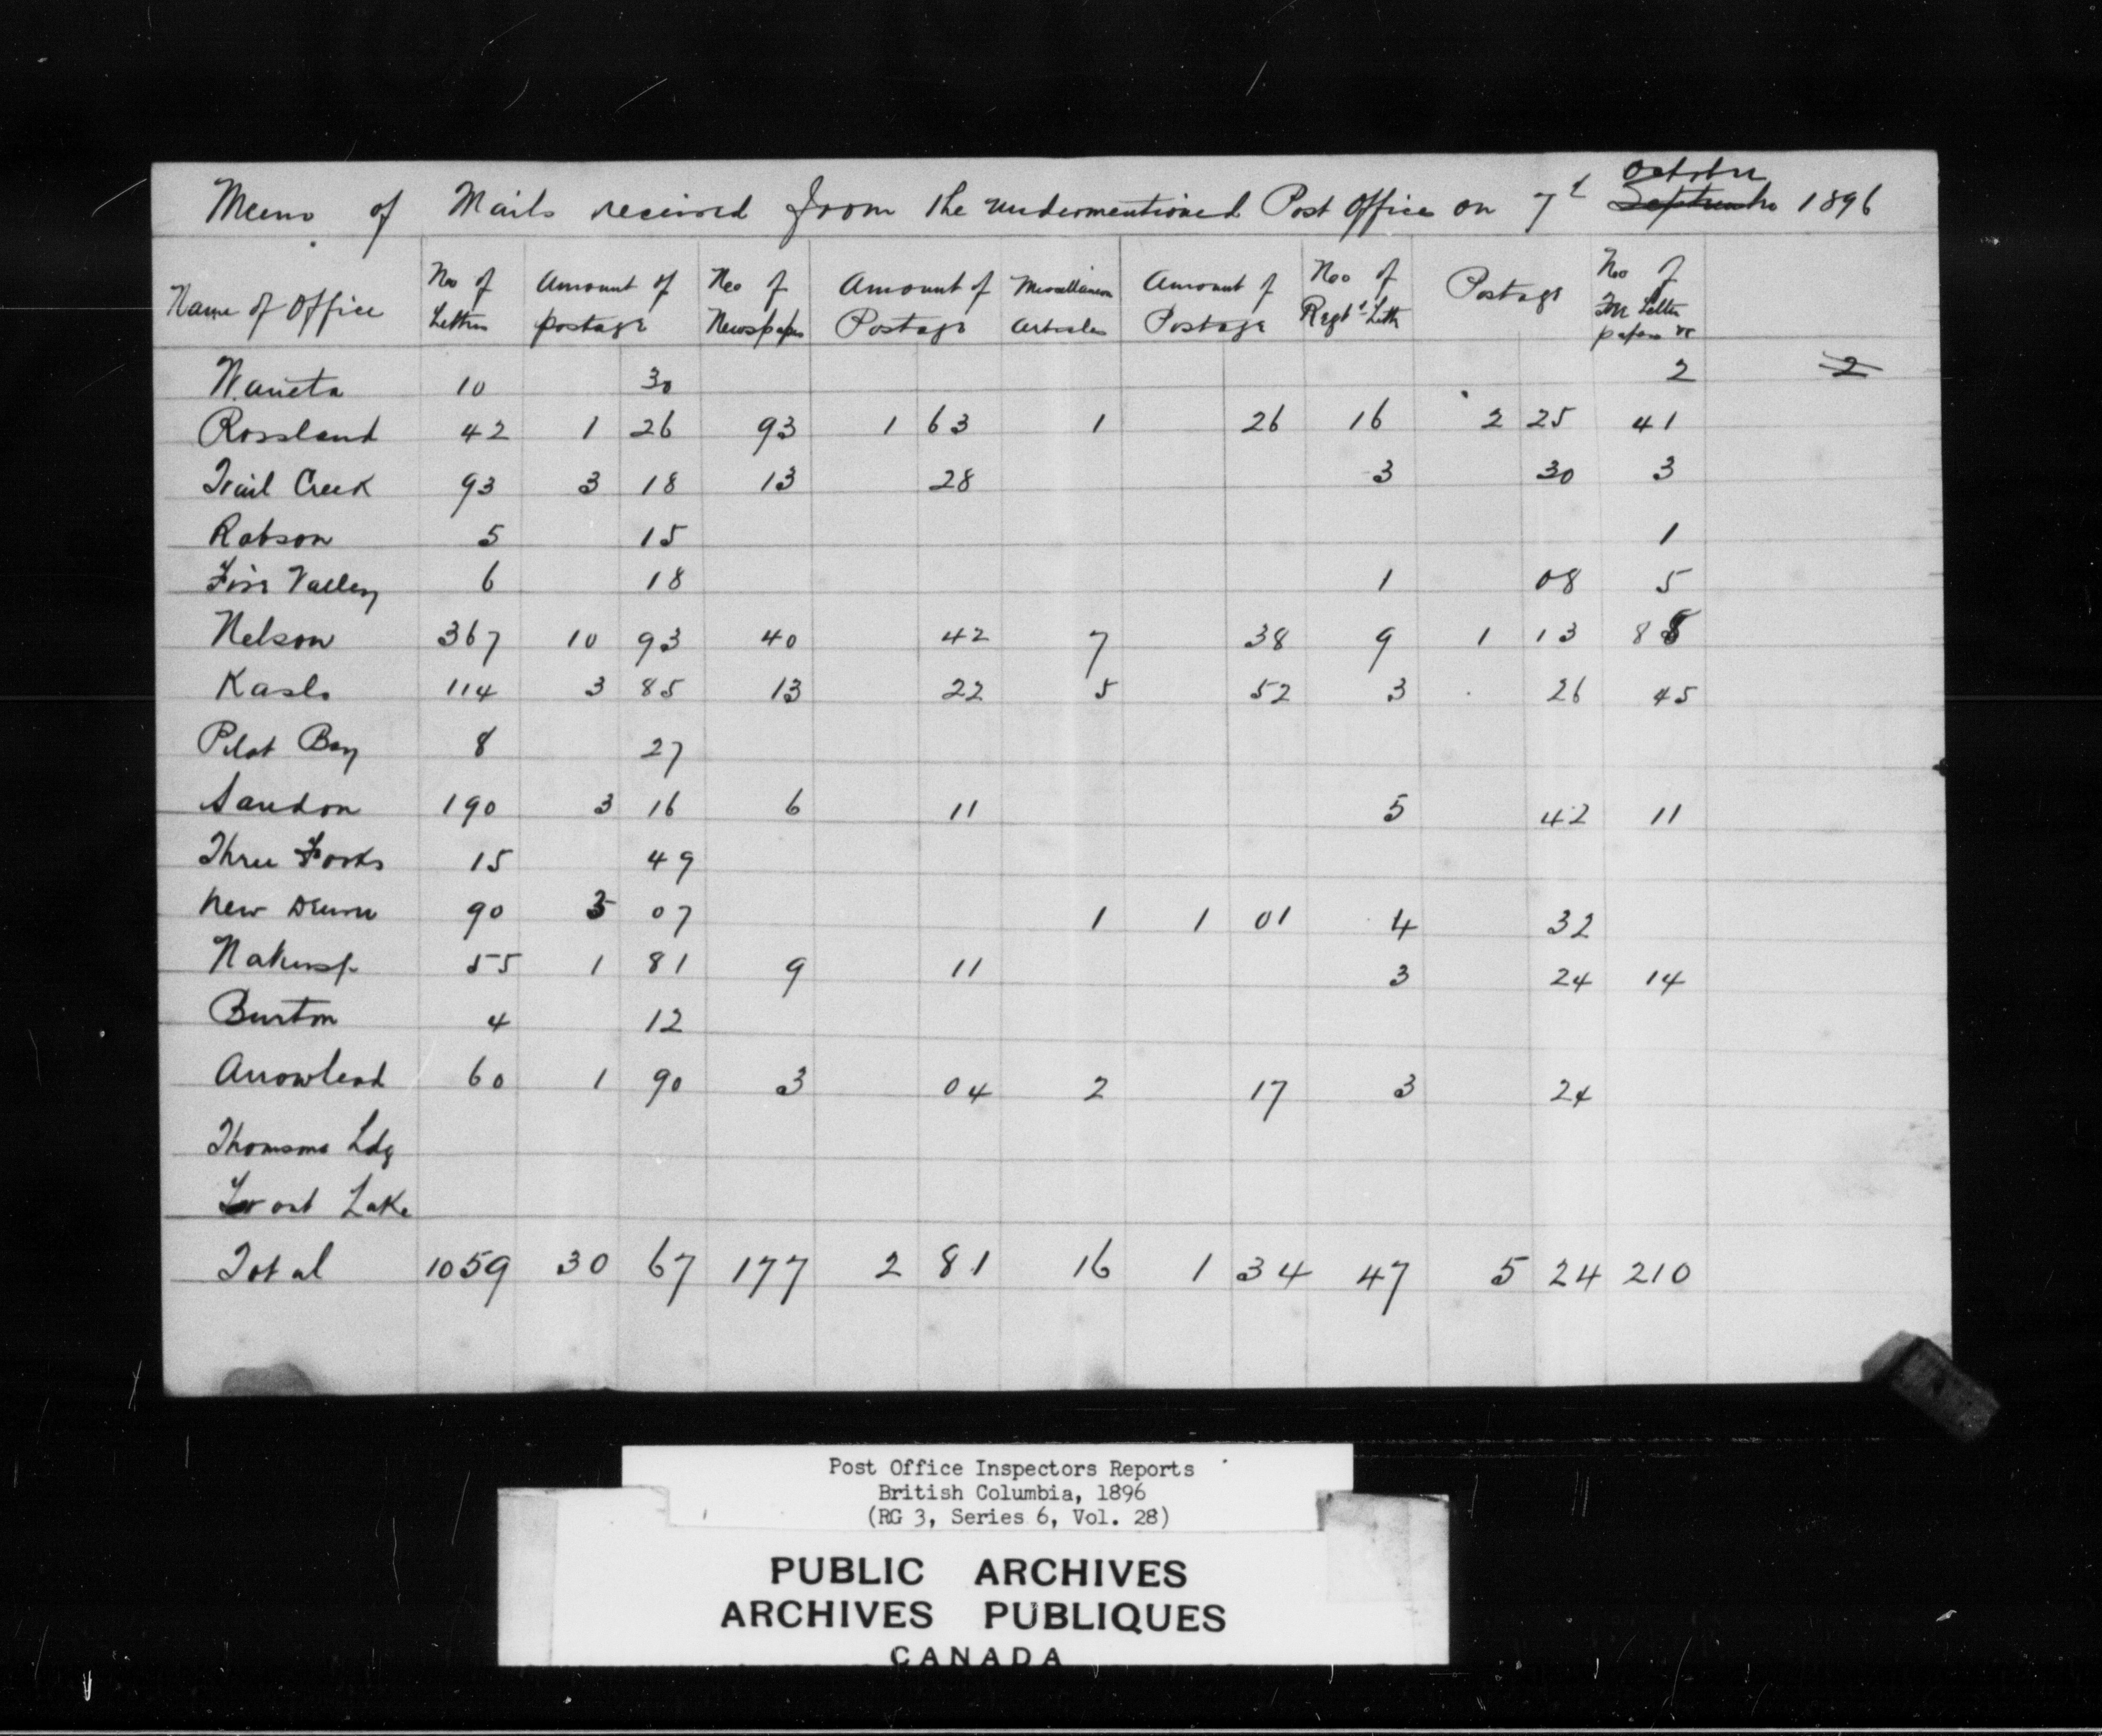 Memo of Mails received from the undermentioned Post Offices on 7th September October 1896
Name of Office No of Letters Amount of postage No of Newspapers Amount of Postage Miscellaneous articles Amount of Postage No of Regt'd Letts Postage No of Letter papers &c
Waneta 10 30 2 2
Rossland 42 1 26 93 1 63 1 26 16 2 25 41
Trail Creek 93 3 18 13 28 3 30 3
Robson 5 15 1
Fire Valley 6 18 1 08 5
Nelson 367 10 93 40 42 7 38 9 1 13 88
Kaslo 114 3 85 13 22 5 52 3 26 45
Pilot Bay 8 27
Sandon 190 3 16 6 11 5 42 11
Three Forks 15 49
New Denver 90 3 07 1 1 01 4 32
Nakusp 55 1 81 9 11 3 24 14
Burton 4 12
Arrowhead 60 1 90 3 04 2 17 3 24
Thomsons Ldg
Trout Lake
Total 1059 30 67 177 2 81 16 1 34 47 5 24 210
Post Office Inspectors Reports
British Columbia, 1896
(RG 3, Series 6, Vol. 28)
PUBLIC ARCHIVES
ARCHIVES PUBLIQUES
CANADA